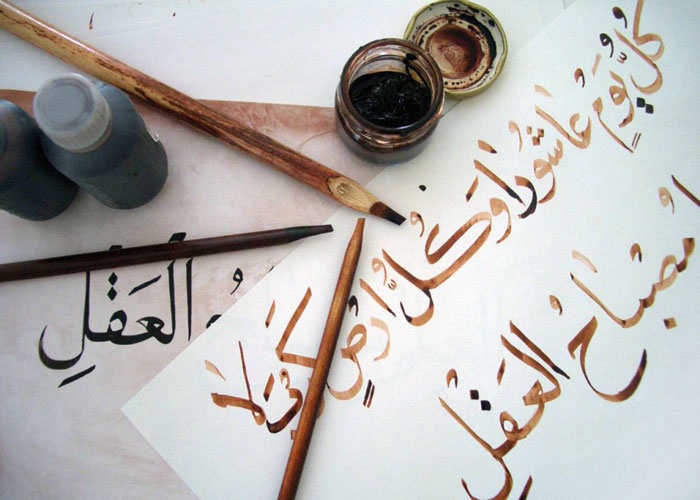 كُلُّ يَوْمٍ عَاشُورَا وَكُلُّ ارْضٍ كَرْبَلَا
مصْبَاحُ العَقْلِ
العَقْلِ